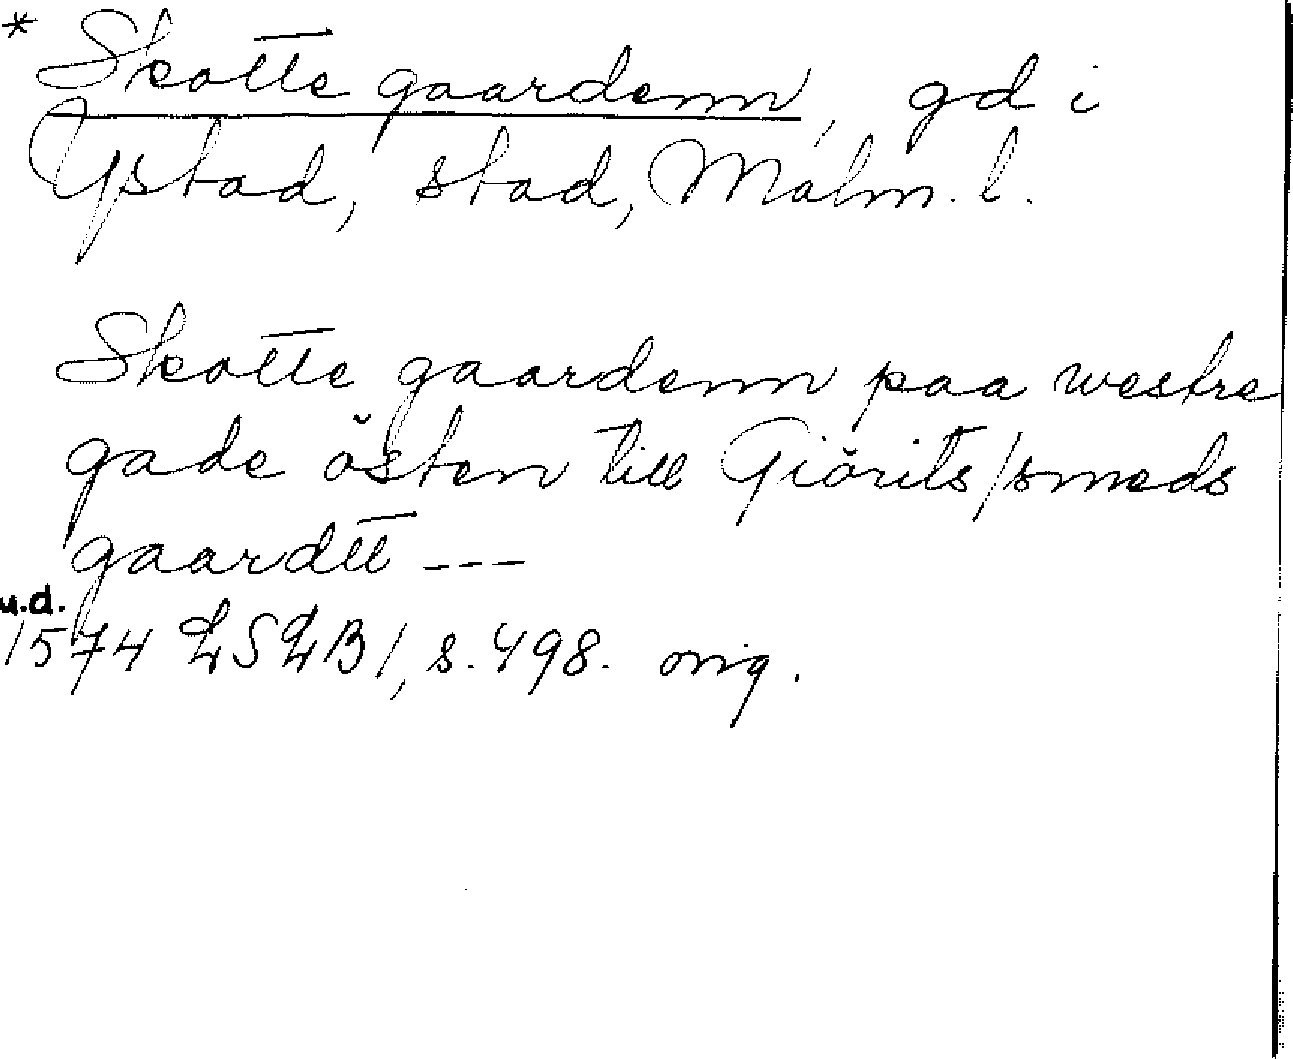 * Skotte gaardenn, gd i
Ystad, stad, Malm. l.
Skotte gaardenn paa westre
gade östen till Giörits/smeds
gaardtt ---
u.d.
1574 LSLB 1, s. 498. orig.